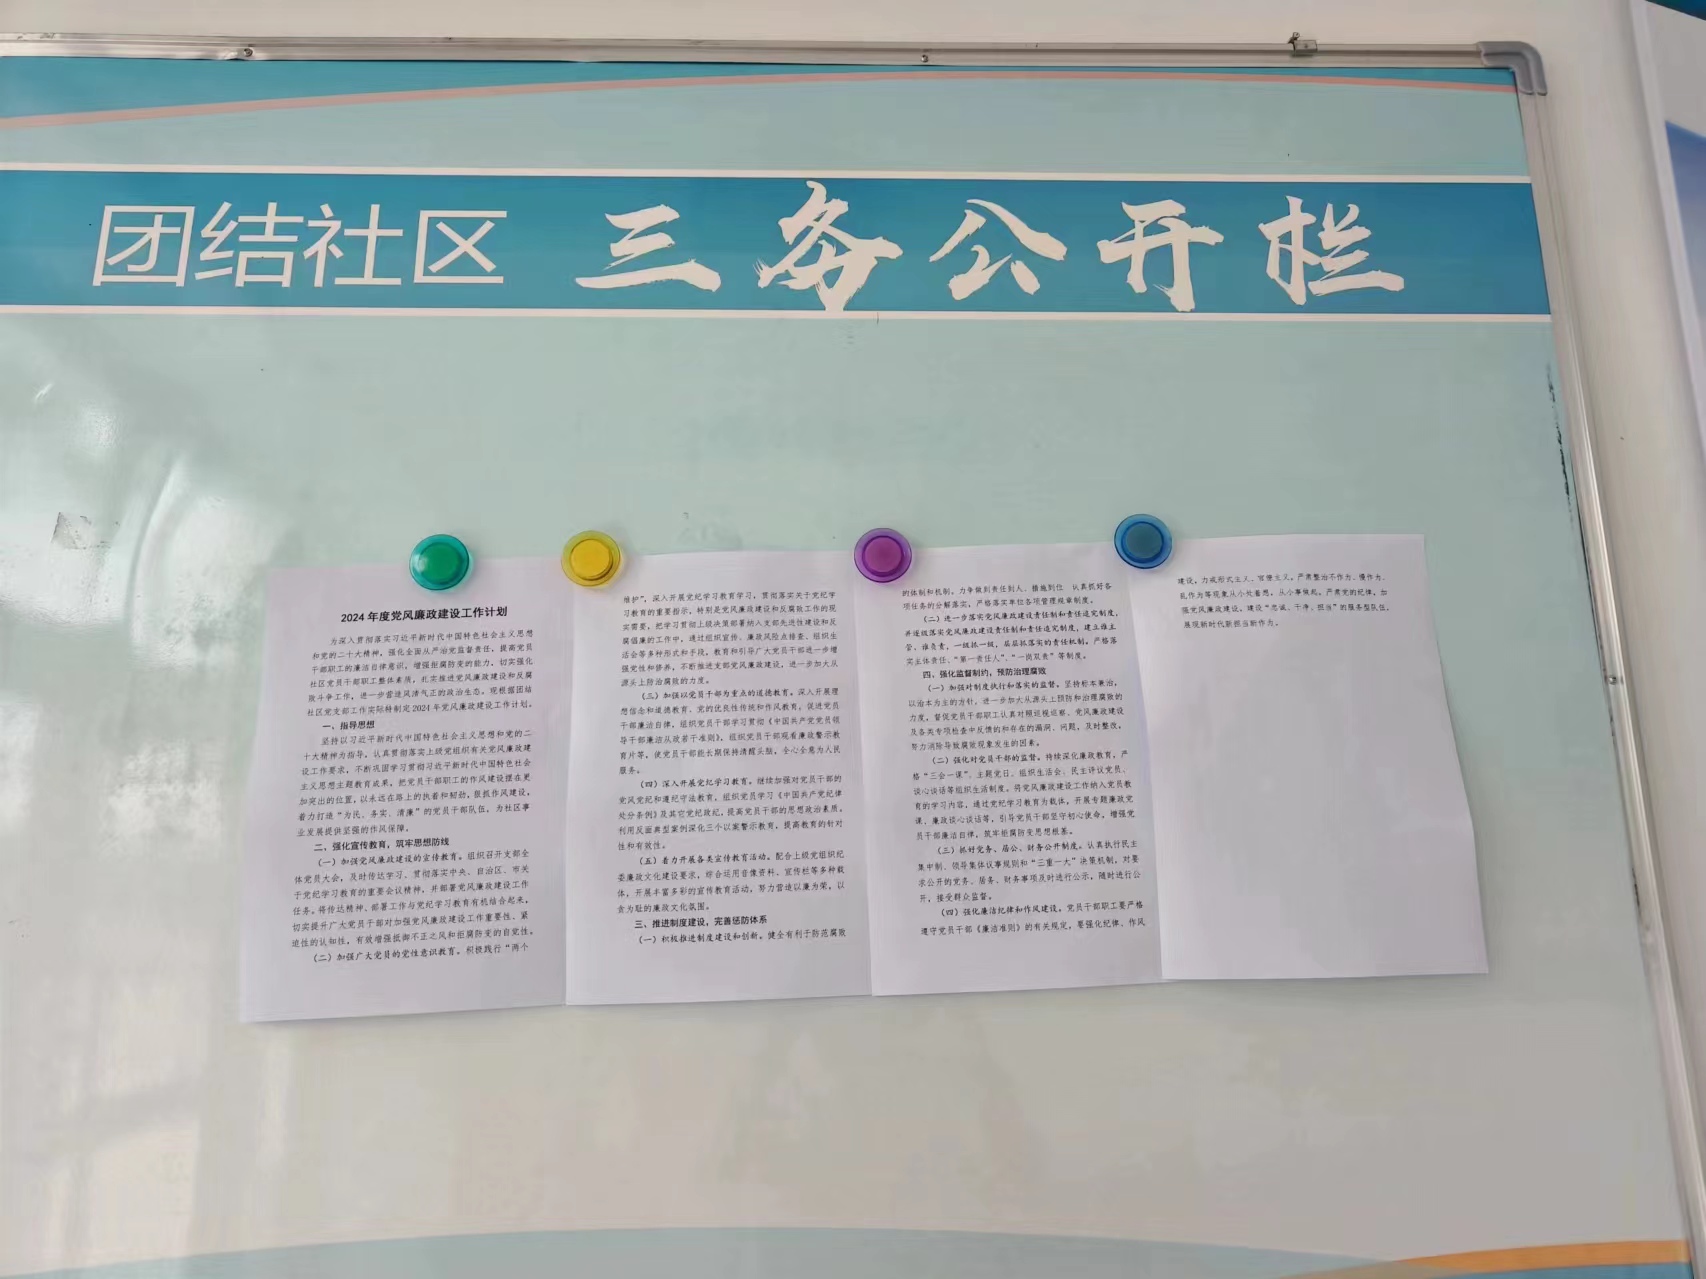 团结社区 三务公开栏
2024年度党风廉政建设工作计划
为深入贯彻落实习近平新时代中国特色社会主义思想
和党的二十大精神，强化全面从严治党监督责任，提高党员
干部职工的廉洁自律意识，增强拒腐防变的能力，切实强化
社区党员干部职工整体素质，扎实推进党风廉政建设和反腐
败斗争工作，进一步营造风清气正的政治生态。现根据团结
社区党支部工作实际特制定2024年党风廉政建设工作计划。
一、指导思想
坚持以习近平新时代中国特色社会主义思想和党的二
十大精神为指导，认真贯彻落实上级党组织有关党风廉政建
设工作要求，不断巩固学习贯彻习近平新时代中国特色社会
主义思想主题教育成果，把党员干部职工的作风建设摆在更
加突出的位置，以永远在路上的执着和韧劲，狠抓作风建设，
着力打造“为民、务实、清廉”的党员干部队伍，为社区事
业发展提供坚强的作风保障。
二、强化宣传教育，筑牢思想防线
（一）加强党风廉政建设的宣传教育。组织召开支部全
体党员大会，及时传达学习、贯彻落实中央、自治区、市关
于党纪学习教育的重要会议精神，并部署党风廉政建设工作
任务。将传达精神、部署工作与党纪学习教育有机结合起来，
切实提升广大党员干部对加强党风廉政建设工作重要性、紧
迫性的认知性，有效增强抵御不正之风和拒腐防变的自觉性。
（二）加强广大党员的党性意识教育。积极践行“两个
维护”，深入开展党纪学习教育学习，贯彻落实关于党纪学
习教育的重要指示，特别是党风廉政建设和反腐败工作的现
实需要，把学习贯彻上级决策部署纳入支部先进性建设和反
腐倡廉的工作中，通过组织宣传、廉政风险点排查、组织生
活会等多种形式和手段，教育和引导广大党员干部进一步增
强党性和修养，不断推进支部党风廉政建设，进一步加大从
源头上防治腐败的力度。
（三）加强以党员干部为重点的道德教育。深入开展理
想信念和道德教育、党的优良性传统和作风教育，促进党员
干部廉洁自律，组织党员干部学习贯彻《中国共产党党员领
导干部廉洁从政若干准则》，组织党员干部观看廉政警示教
育片等，使党员干部能长期保持清醒头脑，全心全意为人民
服务。
（四）深入开展党纪学习教育。继续加强对党员干部的
党风党纪和遵纪守法教育，组织党员学习《中国共产党纪律
处分条例》及其它党纪政纪，提高党员干部的思想政治素质。
利用反面典型案例深化三个以案警示教育，提高教育的针对
性和有效性。
（五）着力开展各类宣传教育活动。配合上级党组织纪
委廉政文化建设要求，综合运用音像资料、宣传栏等多种载
体，开展丰富多彩的宣传教育活动，努力营造以廉为荣，以
贪为耻的廉政文化氛围。
三、推进制度建设，完善惩防体系
（一）积极推进制度建设和创新。健全有利于防范腐败
的体制和机制。力争做到责任到人、措施到位，认真抓好各
项任务的分解落实，严格落实单位各项管理规章制度。
（二）进一步落实党风廉政建设责任制和责任追究制度，
并逐级落实党风廉政建设责任制和责任追究制度，建立谁主
管、谁负责，一级抓一级，层层抓落实的责任机制。严格落
实主体责任、“第一责任人”、“一岗双责”等制度。
四、强化监督制约，预防治理腐败
（一）加强对制度执行和落实的监督。坚持标本兼治，
以治本为主的方针，进一步加大从源头上预防和治理腐败的
力度，督促党员干部职工认真对照巡视巡察、党风廉政建设
及各类专项检查中反馈的和存在的漏洞、问题，及时整改，
努力消除导致腐败现象发生的因素。
（二）强化对党员干部的监督。持续深化廉政教育，严
格“三会一课”、主题党日、组织生活会、民主评议党员、
谈心谈话等组织生活制度。将党风廉政建设工作纳入党员教
育的学习内容，通过党纪学习教育为载体，开展专题廉政党
课、廉政谈心谈话等，引导党员干部坚守初心使命，增强党
员干部廉洁自律，筑牢拒腐防变思想根基。
（三）抓好党务、居公、财务公开制度。认真执行民主
集中制、领导集体议事规则和“三重一大”决策机制，对要
求公开的党务、居务、财务事项及时进行公示，随时进行公
开，接受群众监督。
（四）强化廉洁纪律和作风建设。党员干部职工要严格
遵守党员干部《廉洁准则》的有关规定，要强化纪律、作风
建设，力戒形式主义、官僚主义，严肃整治不作为、慢作为、
乱作为等现象从小处着想，从小事做起，严肃党的纪律，加
强党风廉政建设，建设“忠诚、干净、担当”的服务型队伍，
展现新时代新担当新作为。